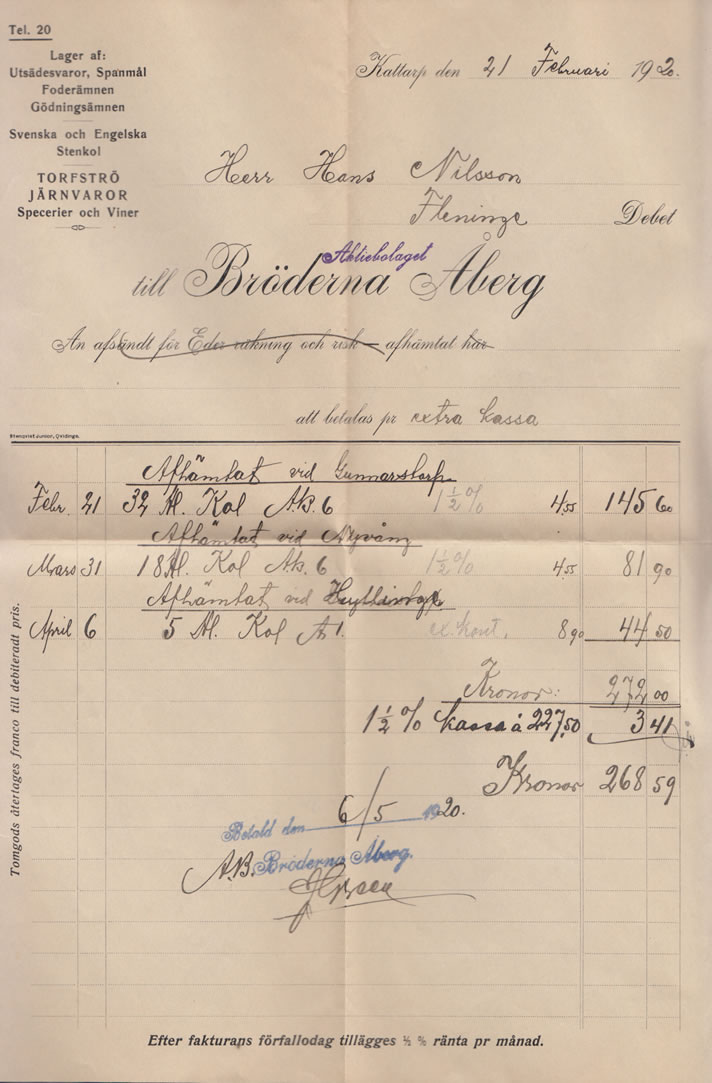 Tel. 20
Lager af:
Utsädesvaror, Spanmål
Foderämnen
Gödningsämnen
Svenska och Engelska
Stenkol
TORFSTRÖ
JÄRNVAROR
Specerier och Viner
Kattarp den 21 Februari 1920.
Herr Hans Nilsson
Fleninge Debet
Aktiebolaget
till Bröderna Åberg
An afsändt för Eder räkning och risk — afhämtat här
att betalas pr extra kassa
Afhämtat vid Gunnarstorp
Febr. 21 32 Hl. Kol Ak. 6 1½% 4,55 145 60
Afhämtat vid Nyvång
Mars 31 18 Hl. Kol Ak. 6 1½% 4,55 81 90
Afhämtat vid Hyllinge
April 6 5 Hl. Kol A 1. ex. kont. 8 90 44 50
Kronor: 272 00
1½ % kassa å 227,50 3 41
Kronor 268 59
Betald den 6/5 1920.
A.B. Bröderna Åberg.
Tomgods återtages franco till debiteradt pris.
Efter fakturans förfallodag tillägges ½ % ränta pr månad.